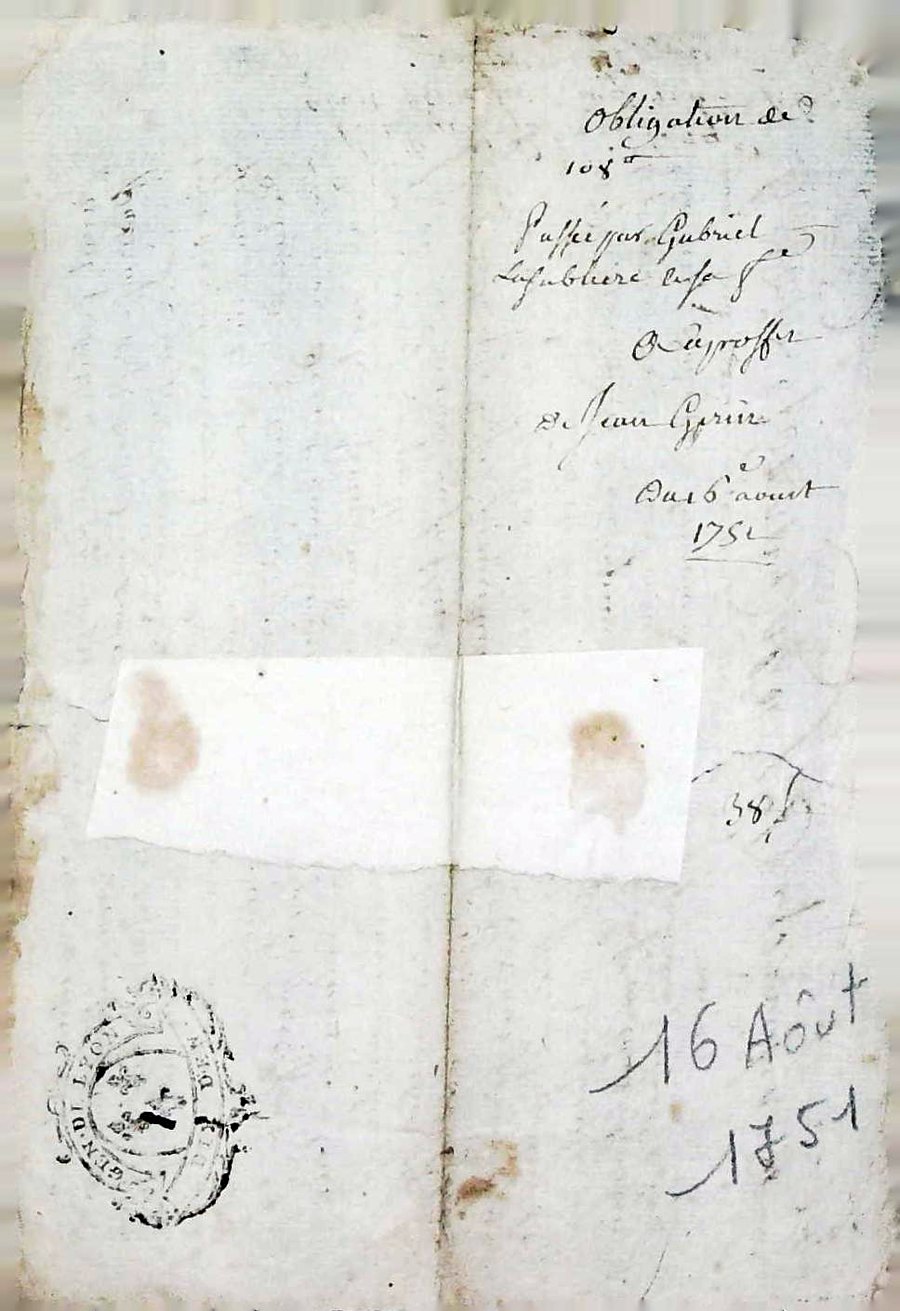 Obligation de
108
Passée par Gabriel
Lasabliere et sa f^e
Au proffit
de Jean Gerin
Du 16^e aoust
1751
38
16 Aôut
1751
GEN. DE LYON